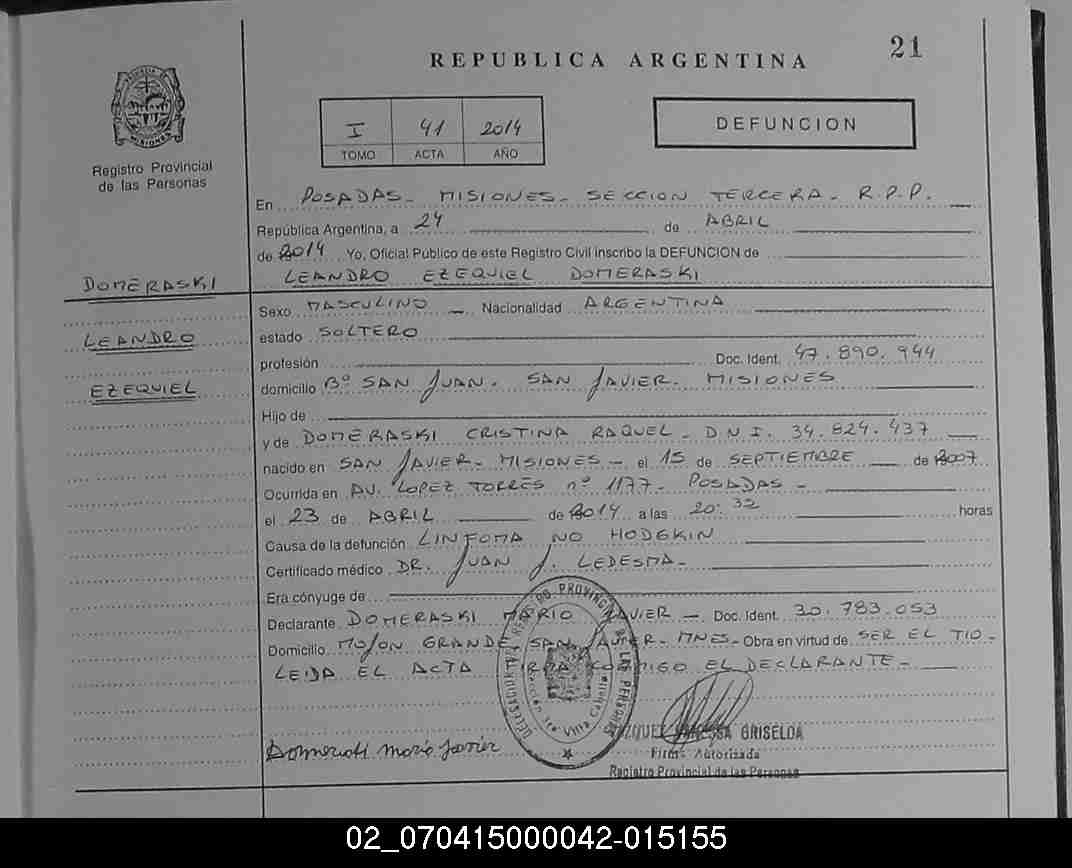 21
REPUBLICA ARGENTINA
PROVINCIA DE
MISIONES
Registro Provincial
de las Personas
I 41 2014
TOMO ACTA AÑO
DEFUNCION
En POSADAS - MISIONES - SECCION TERCERA - R.P.P.
República Argentina, a 24 de ABRIL
de 2014 Yo, Oficial Público de este Registro Civil inscribo la DEFUNCION de
LEANDRO EZEQUIEL DOMERASKI
DOMERASKI
LEANDRO
EZEQUIEL
Sexo MASCULINO Nacionalidad ARGENTINA
estado SOLTERO
profesión Doc. Ident. 47.890.944
domicilio Bº SAN JUAN. SAN JAVIER. MISIONES
Hijo de
y de DOMERASKI CRISTINA RAQUEL - D.N.I. 34.824.437
nacido en SAN JAVIER - MISIONES - el 15 de SEPTIEMBRE de 2007
Ocurrida en AV. LOPEZ TORRES nº 1177 - POSADAS -
el 23 de ABRIL de 2014 a las 20:32 horas
Causa de la defunción LINFOMA NO HODGKIN
Certificado médico DR. JUAN J. LEDESMA -
Era cónyuge de
Declarante DOMERASKI MARIO JAVIER - Doc. Ident. 30.783.053
Domicilio MOJON GRANDE SAN JAVIER - MNES - Obra en virtud de SER EL TIO -
LEIDA EL ACTA FIRMA CONMIGO EL DECLARANTE -
PROVINCIAL DE LAS PERSONAS
Domeraski Mario Javier
VANESA GRISELDA
Firma Autorizada
Registro Provincial de las Personas
02_070415000042-015155